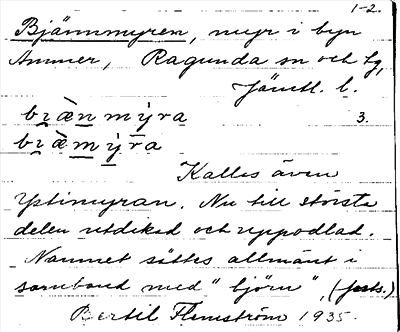 1-2.
Björnmyren, myr i byn
Ammer, Ragunda sn och tg,
Jämtl. l.
bɪæ̀n mýra 3.
bɪæ̀m ýra
Kallas även
Ystimyran. Nu till största
delen utdikad och uppodlad.
Namnet sättes allmänt i
samband med "björn", (justs.)
Bertil Flemström 1935.